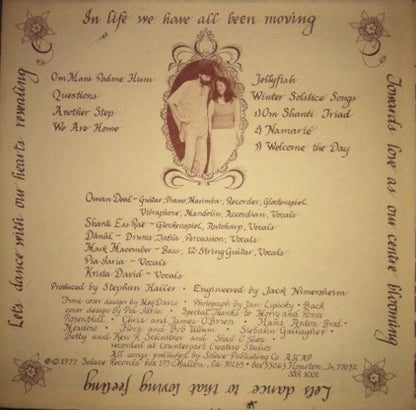 In life we have all been moving
Towards love as our centre blooming
Let's dance to that loving feeling
Let's dance with our hearts revealing
Om Mani Padme Hum
Questions
Another Step
We Are Home
Jellyfish
Winter Solstice Songs
1) Om Shanti Triad
2) Namarié
3) Welcome the Day
Oman Deal ~ Guitar, Piano, Marimba, Recorder, Glockenspiel
Vibraphone, Mandolin, Accordian, Vocals
Shanti Ess Rae ~ Glockenspiel, Autoharp, Vocals
Danäl ~ Drums, Tabla, Percussion, Vocals
Mark Macomber ~ Bass, 12-String Guitar, Vocals
Pia Ilaria ~ Vocals
Krista David ~ Vocals
Produced by Stephan Haller • Engineered by Jack Nimersheim
Front cover design by Meg Davis • Photograph by Jan Lipicky • Back
cover design by Pia Ilaria • Special Thanks to Morry and Rona
Rosenthal • Chris and James O'Brien • Hans Anton Brod
Meadow • Flora and Bob Ullum • Siobahn Gallagher
Betty and Ken R. Schnitzer and Shad O'Shea
recorded at Counterpart Creative Studios
All songs published by Solace Publishing Co. ASCAP
© ℗ 1977 Solace Records Box 193 Malibu, Ca. 90265 • Box 53065 Houston, Tx. 77052
SSR 1001